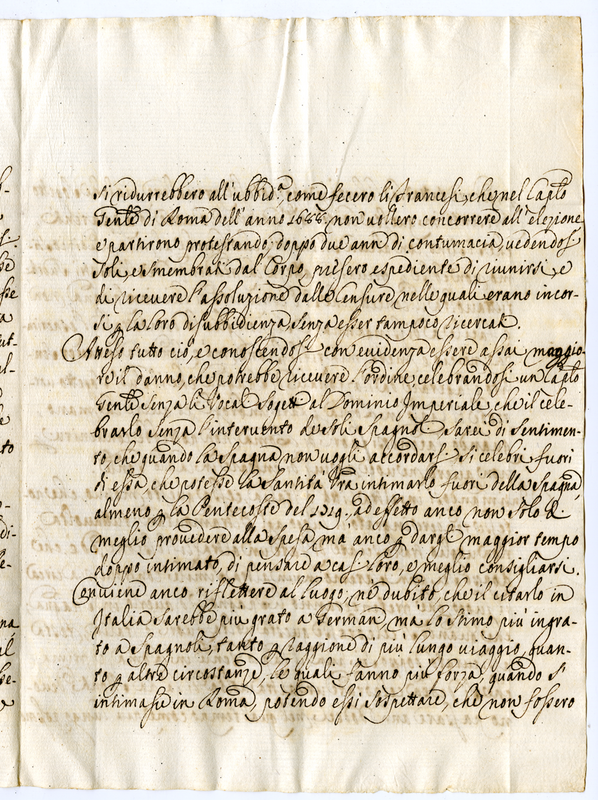 si ridurrebbero all'ubbid.ᵃ come fecero li francesi, che nel Cap̃lo
Gen̄le di Roma dell'anno 1688. non vollero concorrere all'elezione
e partirono protestando, doppo due anni di contumacia, vedendosi
soli e smembrati dal Corpo, presero espediente di riunirsi, e
di ricevere l'assoluzione dalle Censure nelle quali erano incor-
si p la loro disubbidienza senza esser tampoco ricercati.
Atteso tutto ciò, e conoscendosi con evidenza essere assai maggio-
re il danno, che potrebbe ricevere l'ordine celebrandosi un Cap̃lo
Gen̄le senza li Vocali sogetti al Dominio Imperiale, che il cele-
brarlo senza l'intervento de soli Spagnoli sarei di sentimen-
to, che quando la Spagna non voglia accordarsi si celebri fuori
di essa, che potesse la Santità Vrã intimarlo fuori della Spagna
almeno p la Pentecoste del 1719. ad effetto anco non solo di
meglio provedere alla spesa ma anco p dargli maggior tempo
doppo intimato, di pensare a casi loro, e meglio consigliarsi.
Conviene anco riflettere al luogo, nè dubito, che il citarlo in
Italia sarebbe più grato a Germani, ma lo stimo più ingra-
to a Spagnoli, tanto p raggione di più lungo viaggio, quan-
to p altre circostanze, le quali fanno più forza, quando si
intimasse in Roma, potendo essi sospettare, che non fossero